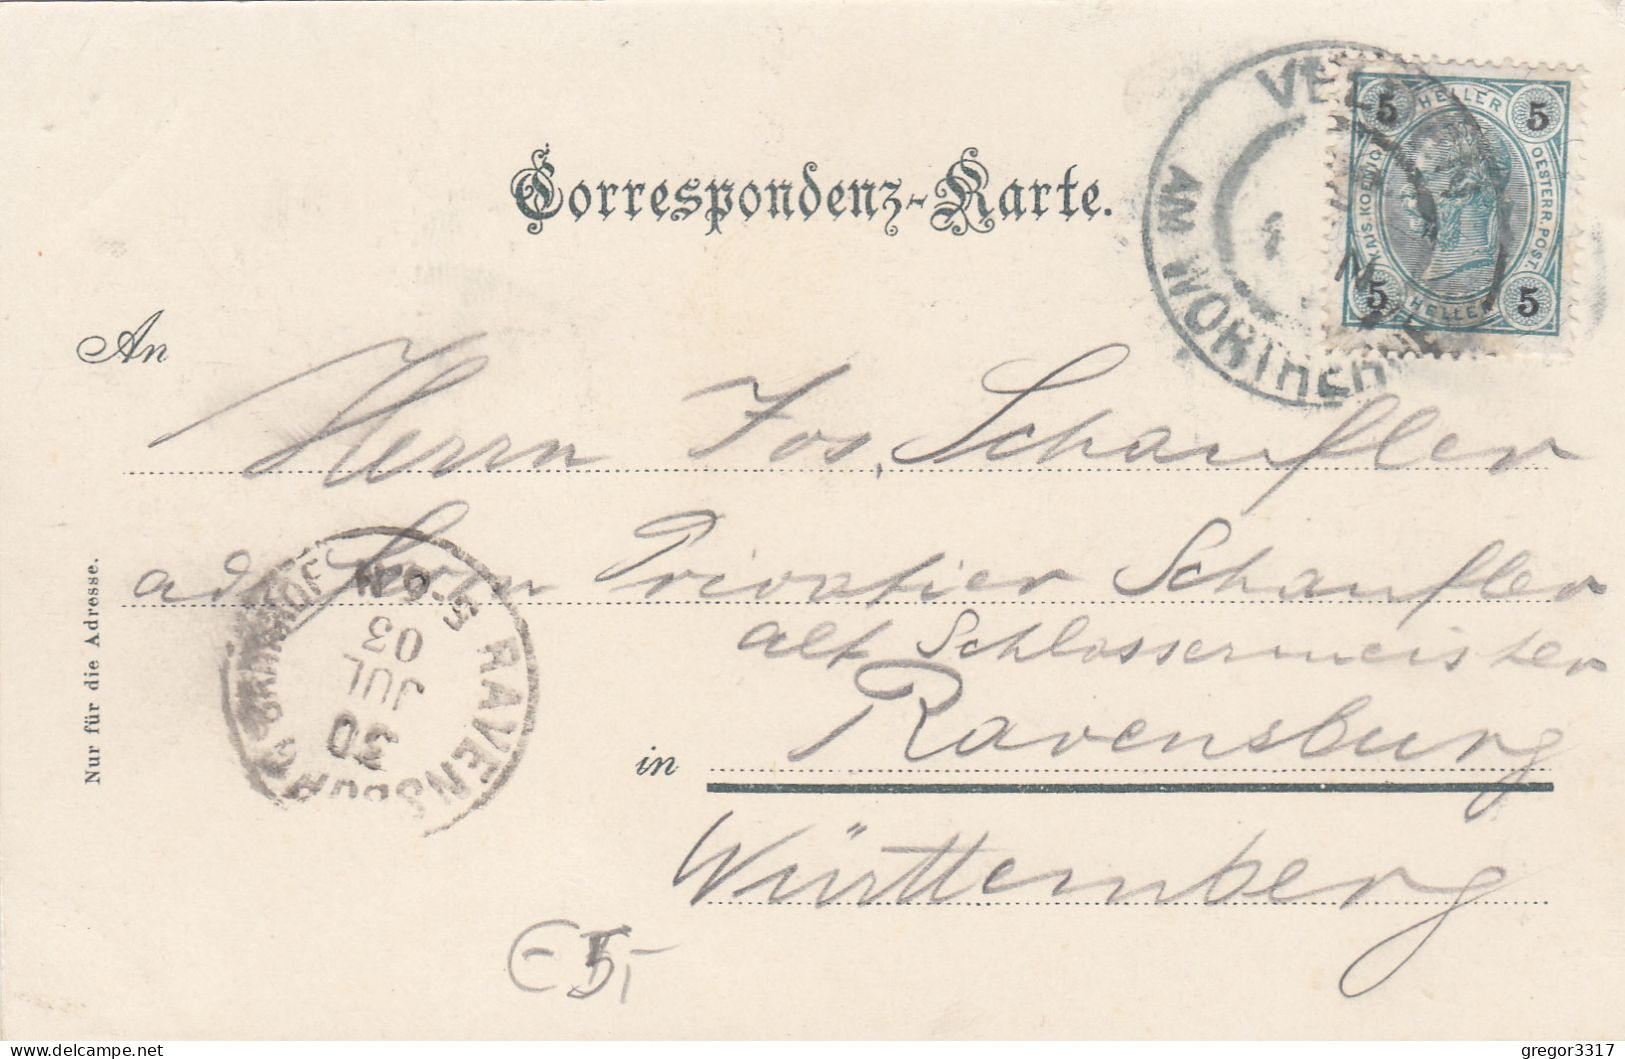 Correspondenz-Karte.
VEL
AM WÖRTHERSEE
5 HELLER 5
KAIS. KOENIGL.
OESTERR. POST.
5 HELLER 5
An
Herrn Jos. Schaufler
ad. Herrn Privatier Schaufler
alt Schlossermeister
in Ravensburg
Württemberg
Nur für die Adresse.
RAVENSBURG BAHNHOF
30
JUL
03
5-6N
E 5,-
gregor3317